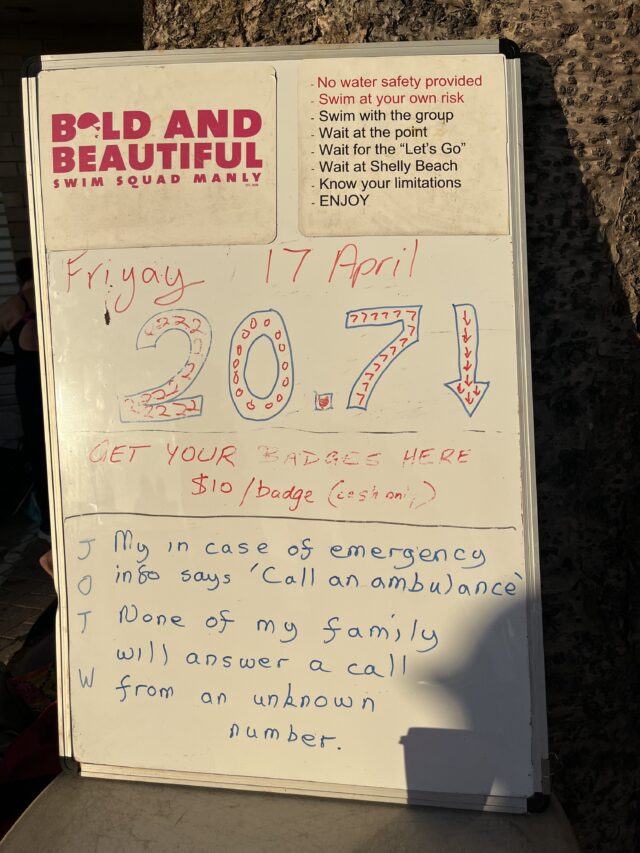 BOLD AND
BEAUTIFUL
SWIM SQUAD MANLY
- No water safety provided
- Swim at your own risk
- Swim with the group
- Wait at the point
- Wait for the "Let's Go"
- Wait at Shelly Beach
- Know your limitations
- ENJOY
Friyay 17 April
20.7↓
GET YOUR BADGES HERE
$10/badge (cash only)
JOTW
My in case of emergency
info says 'Call an ambulance'
None of my family
will answer a call
from an unknown
number.